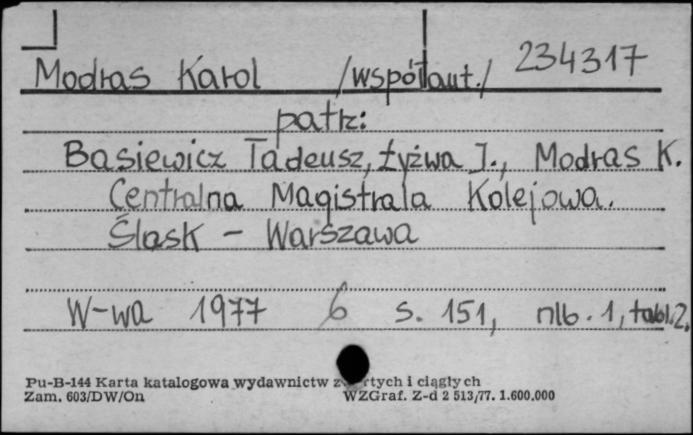 Modras Karol /współaut./ 234317
patrz:
Basiewicz Tadeusz, Łyżwa J., Modras K.
Centralna Magistrala Kolejowa.
Śląsk – Warszawa
W-wa 1977 6 s. 151, nlb. 1, tabl. 2,
Pu-B-144 Karta katalogowa wydawnictw zwartych i ciągłych
Zam. 603/DW/On WZGraf. Z-d 2 513/77. 1.600.000